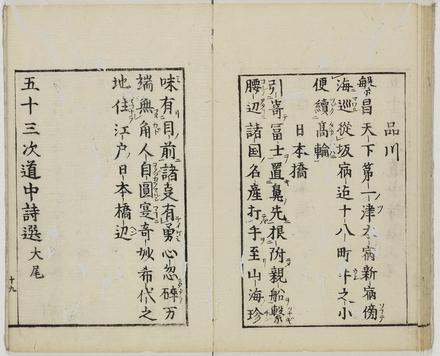 品川
繁昌天下第一津本宿新宿傍
海巡従坂宿迄十八町牛之小
便續高輪
日本橋
引寄冨士置鼻先根附親船繋
腰辺諸国名産打手至山海珍
味有目前諸叓有勇心忽碎万
端無角人自圓寔奇妙希代之
地住江戸日本橋辺
五十三次道中詩選 大尾
十九